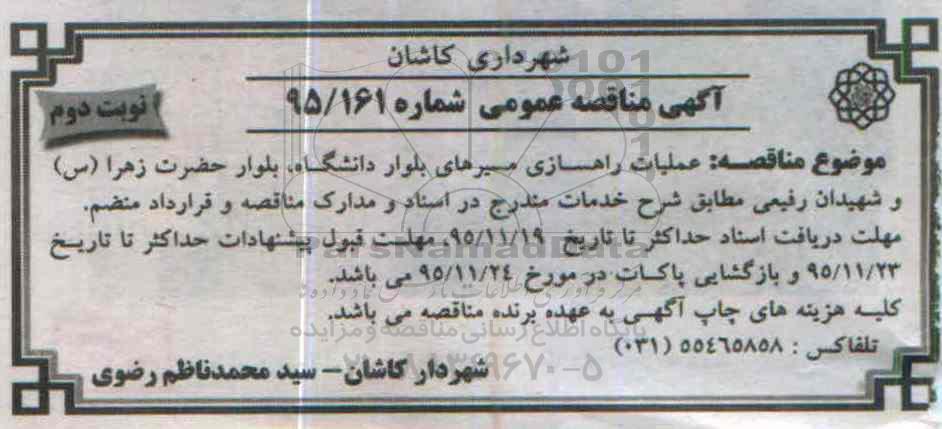 شهرداری کاشان
آگهی مناقصه عمومی شماره ۹۵/۱۶۱
نوبت دوم
موضوع مناقصه: عملیات راهسازی مسیرهای بلوار دانشگاه، بلوار حضرت زهرا (س)
و شهیدان رفیعی مطابق شرح خدمات مندرج در اسناد و مدارک مناقصه و قرارداد منضم.
مهلت دریافت اسناد حداکثر تا تاریخ ۹۵/۱۱/۱۹، مهلت قبول پیشنهادات حداکثر تا تاریخ
۹۵/۱۱/۲۳ و بازگشایی پاکات در مورخ ۹۵/۱۱/۲٤ می باشد.
کلیه هزینه های چاپ آگهی به عهده برنده مناقصه می باشد.
تلفاکس : ۵۵٤٦۵۸۵۸ (۰۳۱)
شهردار کاشان – سید محمدناظم رضوی
ParsNamadData
پایگاه اطلاع رسانی مناقصه و مزایده